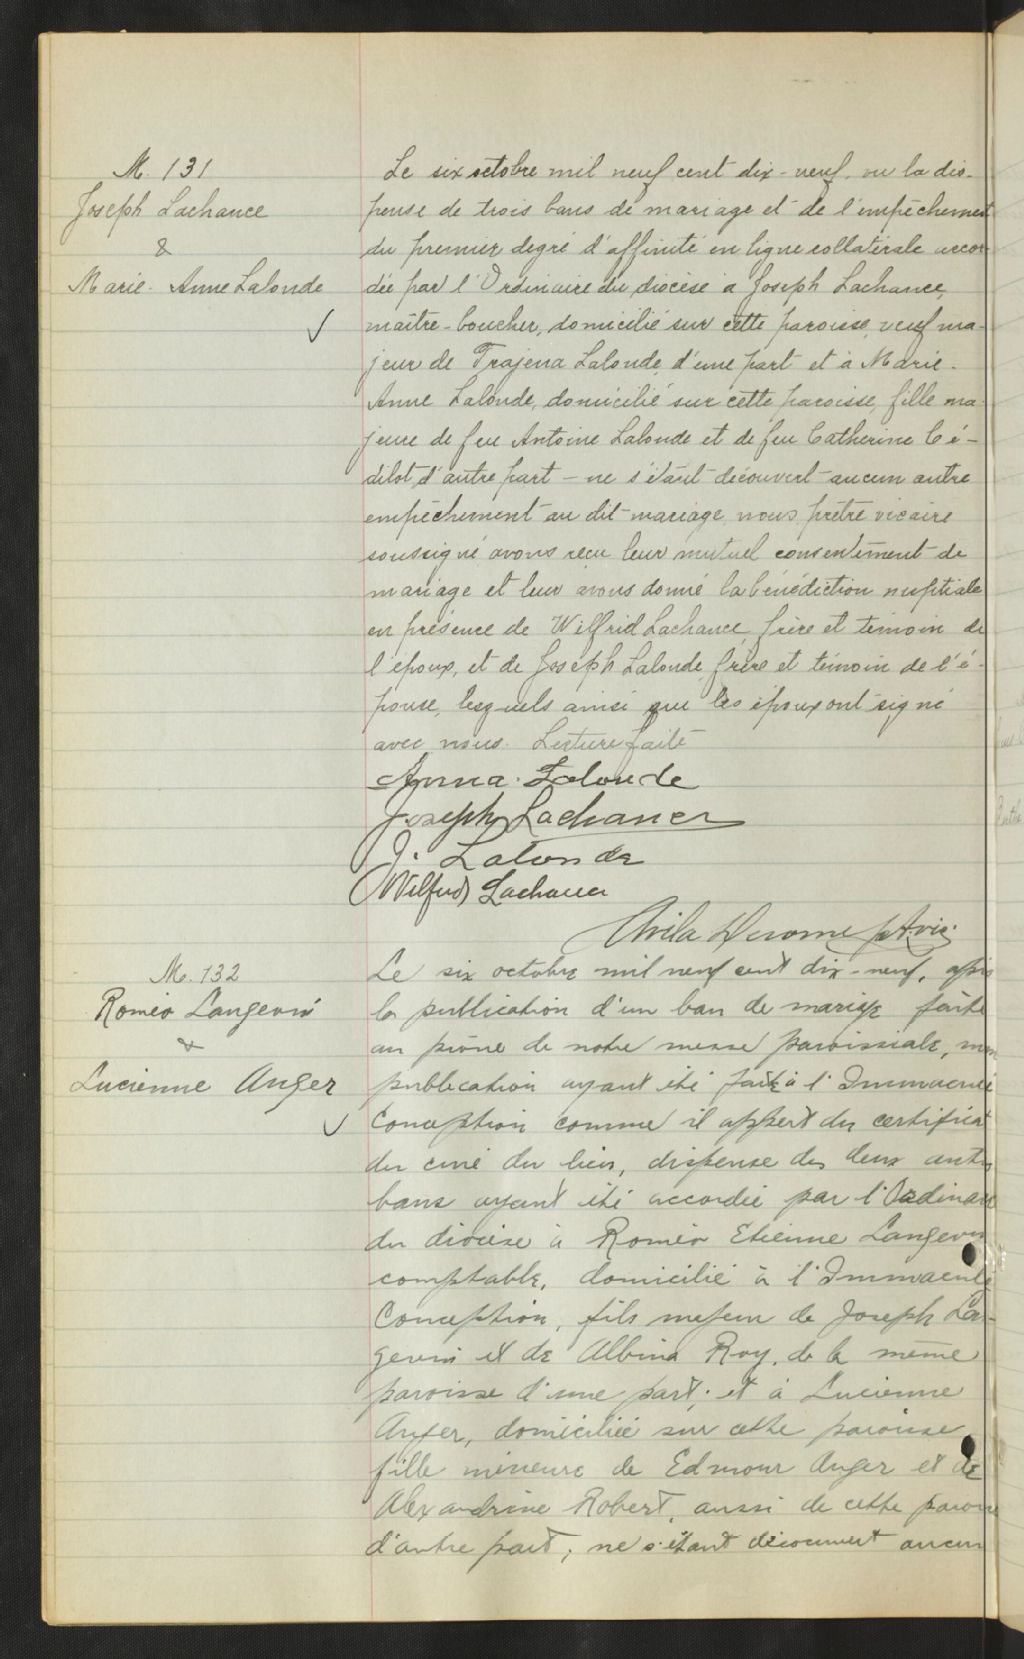 M. 131
Joseph Lachance
&
Marie-Anne Lalonde
Le six octobre mil neuf cent dix-neuf, vu la dis-
pense de trois bans de mariage et de l'empêchement
du premier degré d'affinité en ligne collatérale accor-
dée par l'Ordinaire du diocèse à Joseph Lachance,
maître-boucher, domicilié sur cette paroisse, veuf ma-
jeur de Trajena Lalonde, d'une part et à Marie-
Anne Lalonde, domicilié sur cette paroisse, fille ma-
jeure de feu Antoine Lalonde et de feu Catherine Cé-
dilot, d'autre part - ne s'étant découvert aucun autre
empêchement au dit mariage, nous, prêtre vicaire
soussigné avons reçu leur mutuel consentement de
mariage et leur avons donné la bénédiction nuptiale
en présence de Wilfrid Lachance, frère et témoin de
l'époux, et de Joseph Lalonde, frère et témoin de l'é-
pouse, lesquels ainsi que les époux ont signé
avec nous. Lecture faite
Anna Lalonde
Joseph Lachance
J. Lalonde
Wilfrid Lachance
Avila Derome ptr. vic.
M. 132
Roméo Langevin
&
Lucienne Anger
Le six octobre mil neuf cent dix-neuf, après
la publication d'un ban de mariage faite
au prône de notre messe paroissiale, même
publication ayant été faite à l'Immaculée
Conception comme il appert du certificat
du curé du lieu, dispense des deux autres
bans ayant été accordée par l'Ordinaire
du diocèse à Roméo Etienne Langevin
comptable, domicilié à l'Immaculée
Conception, fils majeur de Joseph Lan-
gevin et de Albina Roy, de la même
paroisse d'une part; et à Lucienne
Anger, domiciliée sur cette paroisse
fille mineure de Edmour Anger et de
Alexandrine Robert, aussi de cette paroisse
d'autre part; ne s'étant découvert aucun